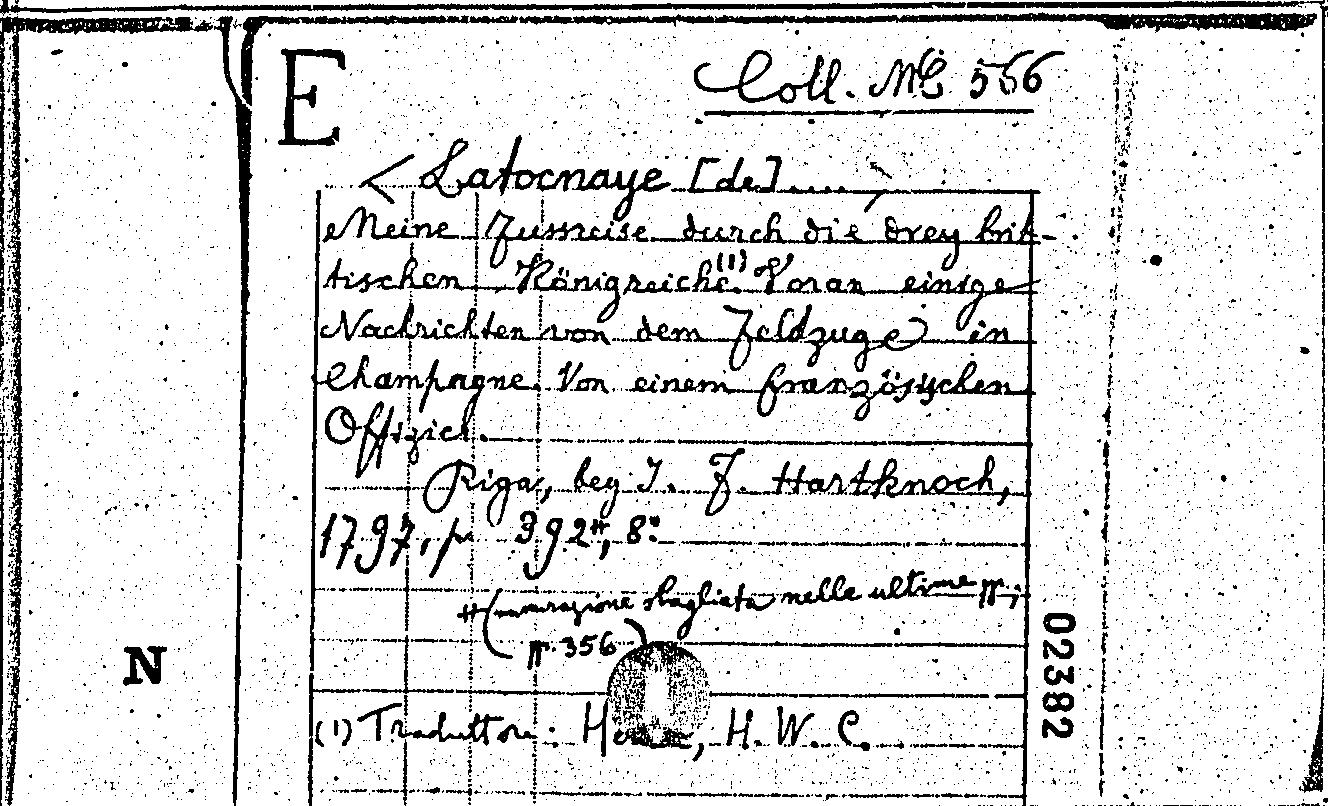 E
Coll. MC 556
< Latocnaye [de].... >
Meine Fussreise durch die drey brit-
tischen Königreiche(1). Voran einige
Nachrichten von dem Feldzuge in
Champagne. Von einem französischen
Offizier.
Riga, bey J. F. Hartknoch,
1797, p 392#, 8°
#(numerazione sbagliata nelle ultime pp;
pp. 356)
N
02382
(1) Traduttore: , H. W. C.